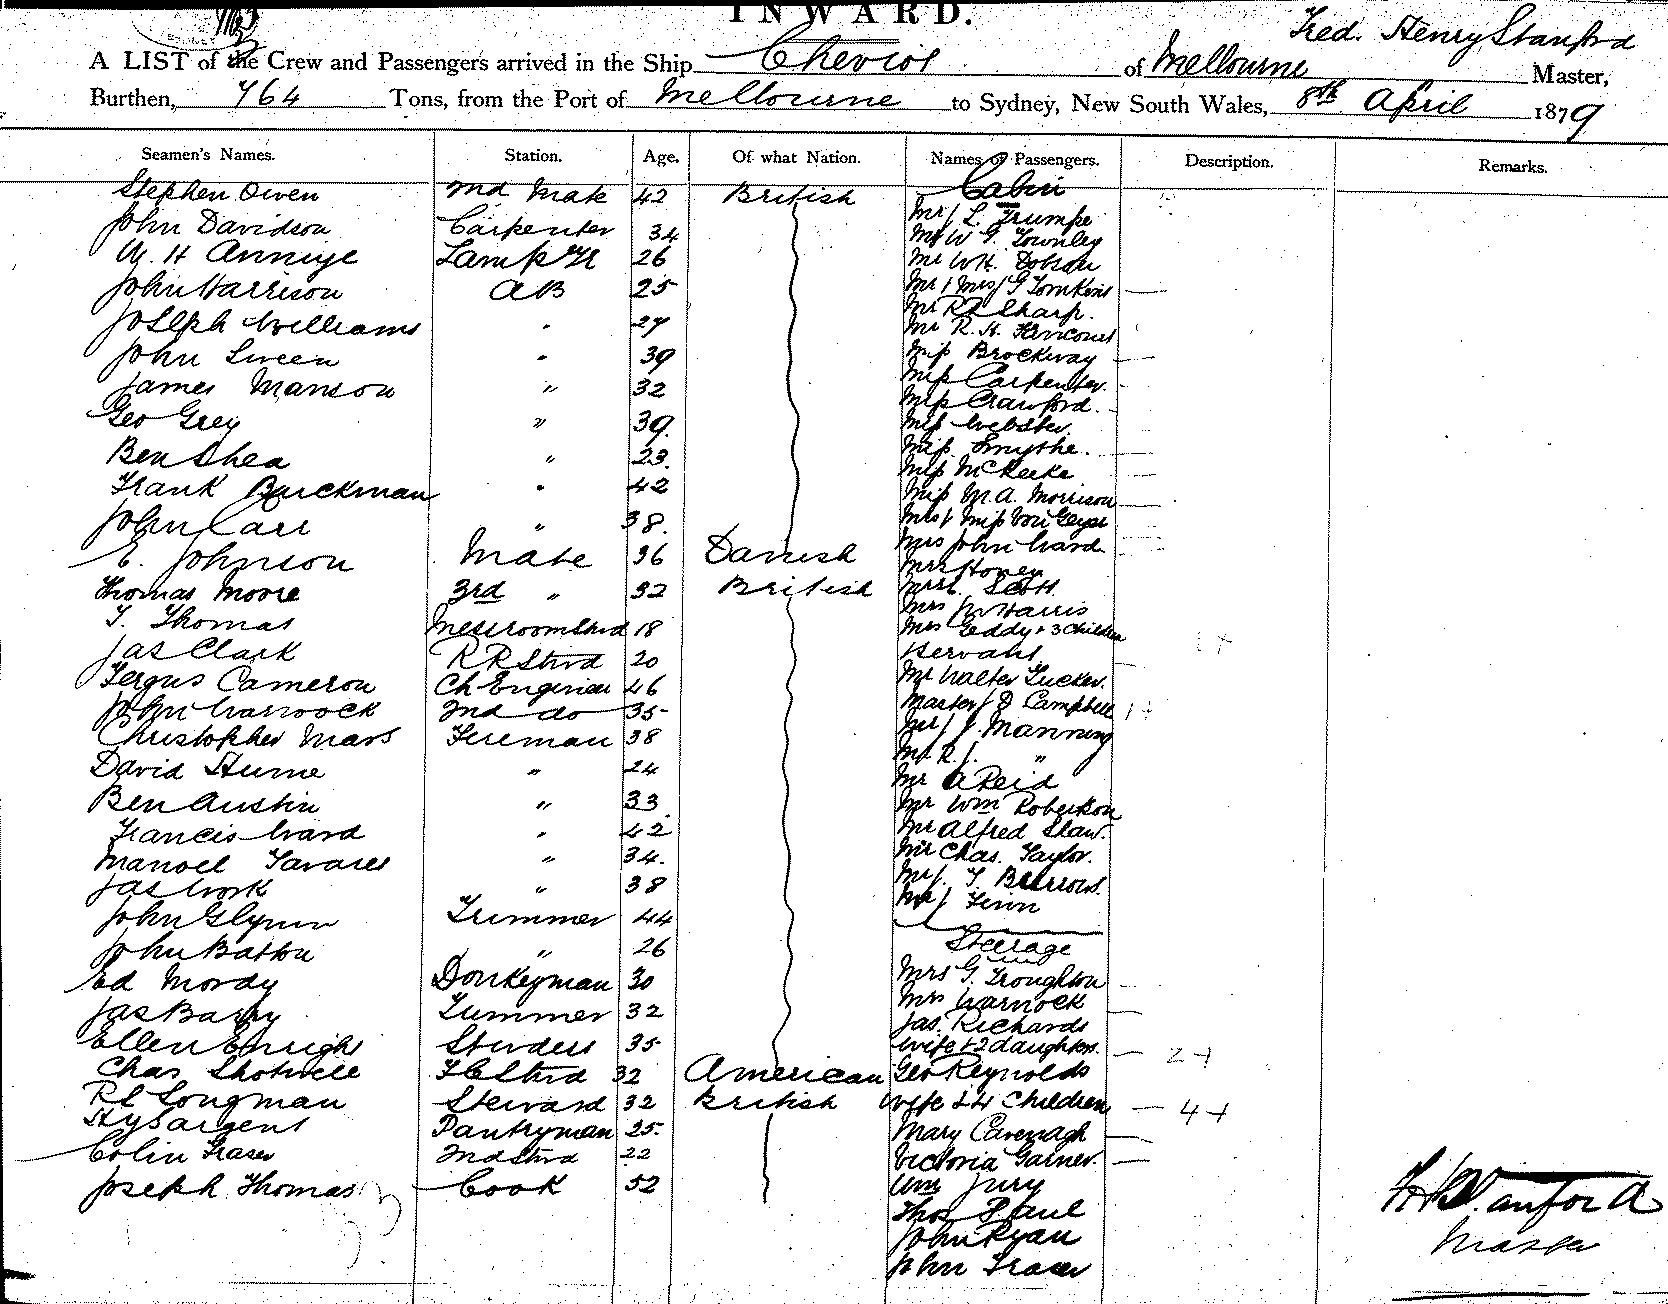 INWARD.
Fred. Henry Stanford
A LIST of the Crew and Passengers arrived in the Ship Cheviot of Melbourne Master,
Burthen, 764 Tons, from the Port of Melbourne to Sydney, New South Wales, 8th April 1879
Seamen's Names. Station. Age. Of what Nation. Names of Passengers. Description. Remarks.
Stephen Owen 2nd Mate 42 British Cabin
John Davidson Carpenter 34
Mr L Trumpe
Mr W G Townley
H 26
Mr W H. Dobson
John Harrison AB 25
Mr & Mrs G Tomkins
Mr R R Sharp.
Joseph Williams " 27
Mr R. H.
John Sween " 39
Miss Brockway
James Manson " 32
Miss Carpenter.
Miss Crawford.
Geo Grey " 39.
Miss Webster.
Ben Shea " 23.
Miss Smythe.
Miss McKeeke
Frank Buckman " 42
Miss M. A. Morrison
John Carr " 38.
Mrs & Miss Von Geyer
Mrs John Ward
E. Johnson Mate 36 Danish
Mrs Honey
Thomas Moore 3rd " 32 British
Mrs Scott.
Mrs Harris
T. Thomas Messroom Stwd 18
Mrs Geddy & 3 Children
Jas Clark R R Stwd 20
Servant
Fergus Cameron Ch Engineer 46
Mr Walter Tucker.
John Warnock 2nd do 35
Master D Campbell
Christopher Mars Fireman 38
Mr J. Manning
Mr R J. "
David Hume " 24
Mr A Reid
Ben Austin " 33
Mr Wm Robertson
Francis Ward " 42
Mr Alfred Shaw.
Manoel Tavares " 34.
Mr Chas. Taylor.
Jas Work " 38
Mr T. Burrows.
Mr Finn
John Glynn Trimmer 44
Steerage
John Batton " 26
Ed Mordy Donkeyman 30
Mrs G. Troughton
Mrs Warnock
Jas Barry Trimmer 32
Jas. Richards
Ellen Enright Stewdess 35
Wife & 2 daughters. 2 +
Chas Shotwell F C Stwd 32 American Geo Reynolds
R C Longman Steward 32 British Wife & 4 Children 4 +
Hy Sargent Pantryman 25.
Mary Cavenagh
Colin Fraser 2nd Stwd 22
Victoria Garner.
Joseph Thomas Cook 52
Wm Jury
Thos Paul
John Ryan
John Fraser
F H Stanford
Master